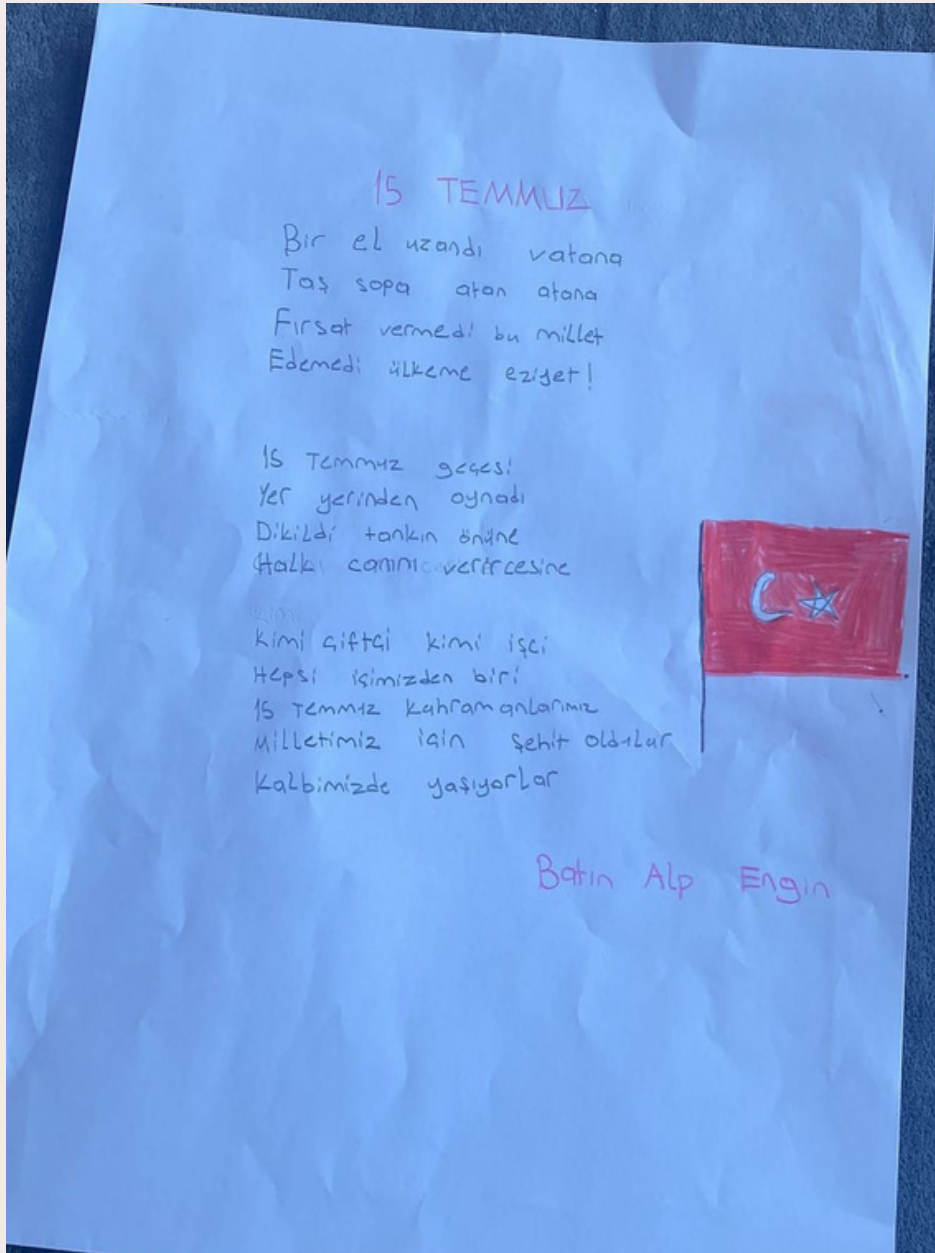 15 TEMMUZ
Bir el uzandı vatana
Taş sopa atan atana
Fırsat vermedi bu millet
Edemedi ülkeme eziyet!
15 Temmuz geçesi
Yer yerinden oynadı
Dikildi tankın önüne
Halkı canını verircesine
kimi
Kimi çiftçi kimi işçi
Hepsi içimizden biri
15 Temmuz Kahramanlarımız
Milletimiz için şehit oldular
Kalbimizde yaşıyorlar
Batın Alp Engin